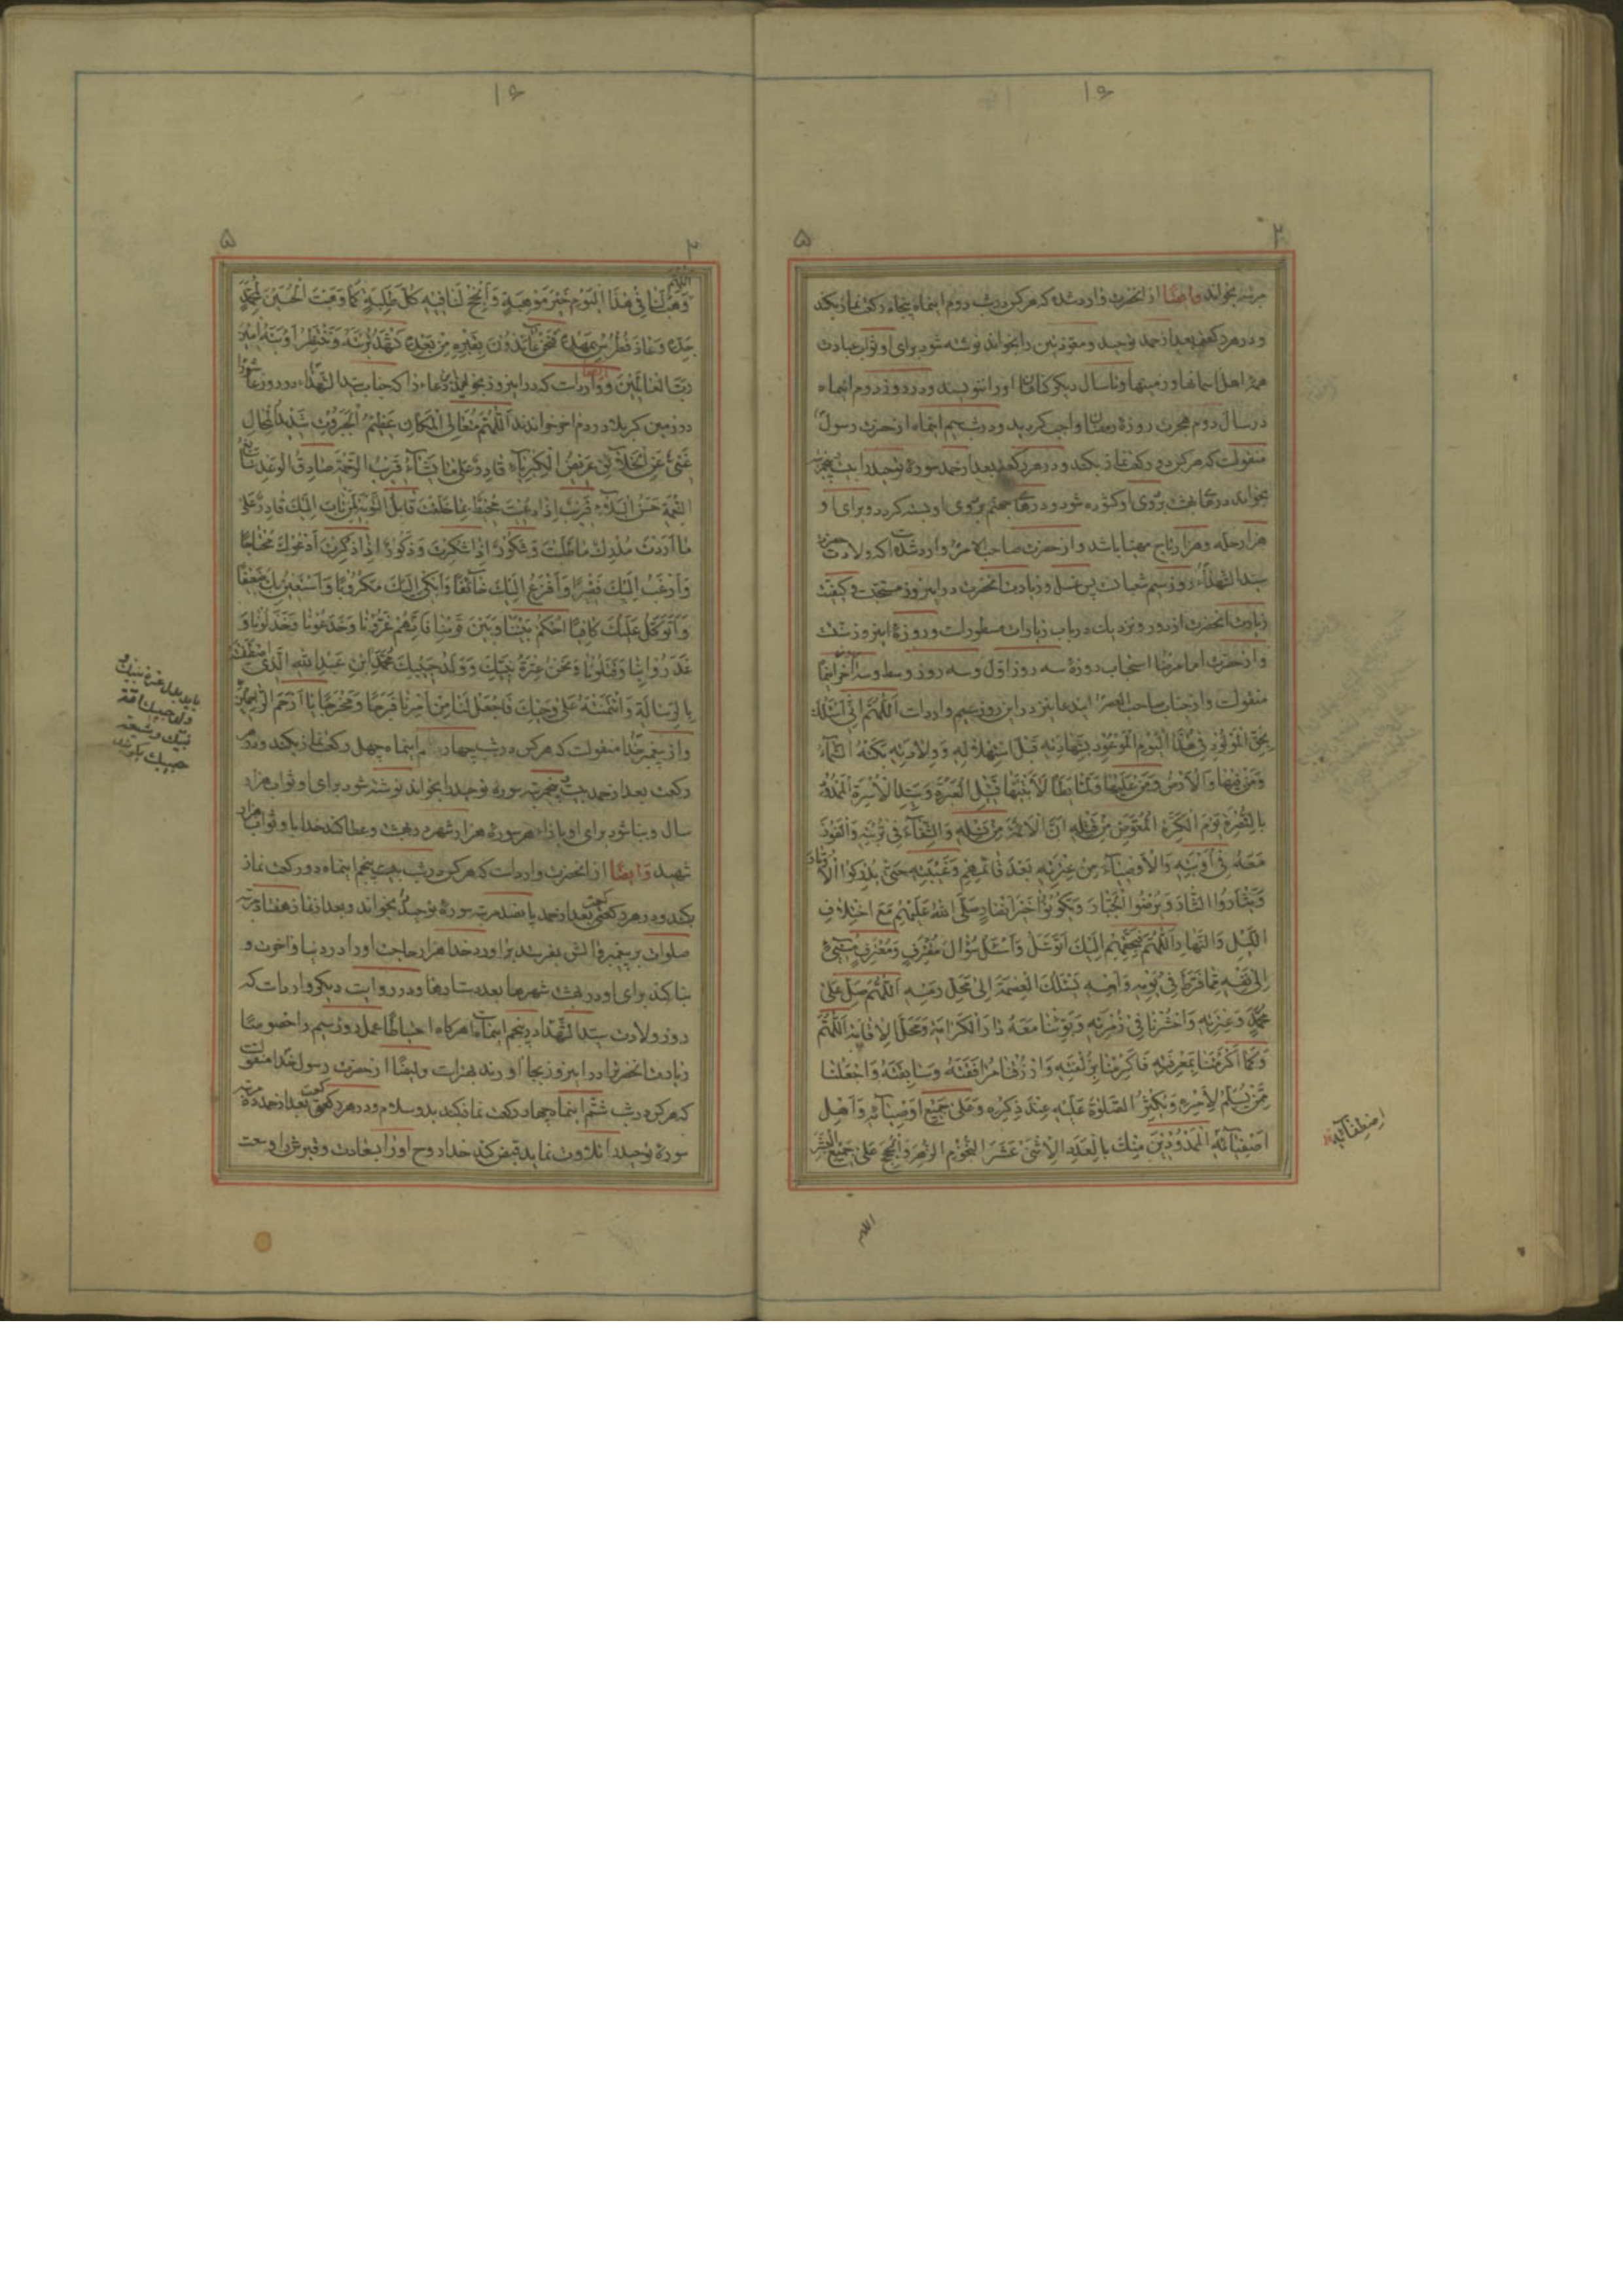 ۱۶
۲ ۵
مرتبه بخواند وایضًا از انحضرت وارد شده که هرکس در شب دوم اینماه پنجاه رکعت نماز بکند
و در هر رکعتی بعد از حمد توحید و معوذتین را بخواند نوشته شود برای او ثواب عبادت
همهٔ اهل اسمانها و زمینها و تا سال دیگر کناهان او را ننویسند و در روز دوم اینماه
در سال دوم هجرت روزهٔ رمضان واجب کردید و در شب سیم اینماه از حضرت رسول
منقولست که هرکس دو رکعت نماز بکند و در هر رکعتی بعد از حمد سورهٔ توحید را بیست پنجمرتبه
بخواند درهای بهشت بروی او کشوده شود و درهای جهنم بروی او بسته کردد و برای او
هزار حله و هزار تاج مهیا باشد و از حضرت صاحب الامر وارد شده است که ولادت
سید الشهداء روز سیم شعبانست پس غسل و زیارت انحضرت در اینروز مستحبست و کیفیت
زیارت انحضرت از دور و نزدیک در باب زیارات مسطور است و روزهٔ اینروز سنت
و از حضرت امام رضا استحباب روزهٔ سه روز اول و سه روز وسط و سه روز آخر اینماه
منقولست و از جناب صاحب العصر ایندعا نیز در این روز سیم وارد است اَللّٰهُمَّ اِنّی اَسْئَلُكَ
بِحَقِّ الْمَوْلُودِ فِی هٰذَا الْیَوْمِ الْمَوْعُودِ بِشَهَادَتِهِ قَبْلَ اسْتِهْلَالِهِ وَ وِلَادَتِهِ بَكَتْهُ السَّمَآءُ
وَمَنْ فِیهَا وَالْاَرْضُ وَمَنْ عَلَیْهَا وَلَمَّا یَطَأْ لَابَتَیْهَا قَتِیلِ الْعَبْرَةِ وَسَیِّدِ الْاُسْرَةِ الْمَمْدُودِ
بِالنُّصْرَةِ یَوْمَ الْكَرَّةِ الْمُعَوَّضِ مِنْ قَتْلِهِ اَنَّ الْاَئِمَّةَ مِنْ نَسْلِهِ وَالشِّفَآءَ فِی تُرْبَتِهِ وَالْفَوْزَ
مَعَهُ فِی اَوْبَتِهِ وَالْاَوْصِیَآءَ مِنْ عِتْرَتِهِ بَعْدَ قَائِمِهِمْ وَغَیْبَتِهِ حَتّٰی یُدْرِكُوا الْاَوْتَارَ
وَیَثْاَرُوا الثَّارَ وَیُرْضُوا الْجَبَّارَ وَیَكُونُوا خَیْرَ اَنْصَارٍ صَلَّی اللهُ عَلَیْهِمْ مَعَ اخْتِلَافِ
اللَّیْلِ وَالنَّهَارِ اَللّٰهُمَّ فَبِحَقِّهِمْ اِلَیْكَ اَتَوَسَّلُ وَاَسْئَلُ سُؤَالَ مُقْتَرِفٍ وَمُعْتَرِفٍ مُسِیءٍ
اِلٰی نَفْسِهِ مِمَّا فَرَّطَ فِی یَوْمِهِ وَاَمْسِهِ یَسْئَلُكَ الْعِصْمَةَ اِلٰی مَحَلِّ رَمْسِهِ اَللّٰهُمَّ صَلِّ عَلٰی
مُحَمَّدٍ وَعِتْرَتِهِ وَاحْشُرْنَا فِی زُمْرَتِهِ وَبَوِّئْنَا مَعَهُ دَارَ الْكَرَامَةِ وَمَحَلَّ الْاِقَامَةِ اَللّٰهُمَّ
وَكَمَا اَكْرَمْتَنَا بِمَعْرِفَتِهِ فَاَكْرِمْنَا بِزُلْفَتِهِ وَارْزُقْنَا مُرَافَقَتَهُ وَسَابِقَتَهُ وَاجْعَلْنَا
مِمَّنْ یُسَلِّمُ لِاَمْرِهِ وَیُكْثِرُ الصَّلٰوةَ عَلَیْهِ عِنْدَ ذِكْرِهِ وَعَلٰی جَمِیعِ اَوْصِیَآئِهِ وَاَهْلِ
اَصْفِیَآئِهِ الْمَمْدُودِینَ مِنْكَ بِالْعَدَدِ الْاِثْنَیْ عَشَرَ النُّجُومِ الزُّهَرِ وَالْحُجَجِ عَلٰی جَمِیعِ الْبَشَرِ
اِصْطِفَآئِهِ
اللهم
۱۶
۲ ۵
اَللّٰهُمَّ
وَهَبْ لَنَا فِی هٰذَا الْیَوْمِ خَیْرَ مَوْهِبَةٍ وَاَنْجِحْ لَنَا فِیهِ كُلَّ طَلِبَةٍ كَمَا وَهَبْتَ الْحُسَیْنَ لِمُحَمَّدٍ
جَدِّهِ وَعَاذَ فُطْرُسُ بِمَهْدِهِ فَنَحْنُ عَائِذُونَ بِقَبْرِهِ مِنْ بَعْدِهِ نَشْهَدُ تُرْبَتَهُ وَنَنْتَظِرُ اَوْبَتَهُ اٰمِینَ
رَبَّ الْعَالَمِینَ و وارد است که در اینروز بخواند دعاء را که جناب سید الشهداء در روز عاشورا
در زمین کربلا در دم اخر خواندند اَللّٰهُمَّ مُتَعَالِیَ الْمَكَانِ عَظِیمَ الْجَبَرُوتِ شَدِیدَ الْمِحَالِ
غَنِیٌّ عَنِ الْخَلَائِقِ عَرِیضُ الْكِبْرِیَآءِ قَادِرٌ عَلٰی مَا تَشَآءُ قَرِیبُ الرَّحْمَةِ صَادِقُ الْوَعْدِ سَابِغُ
النِّعْمَةِ حَسَنُ الْبَلَآءِ قَرِیبٌ اِذَا دُعِیتَ مُحِیطٌ بِمَا خَلَقْتَ قَابِلُ التَّوْبَةِ لِمَنْ تَابَ اِلَیْكَ قَادِرٌ عَلٰی
مَا اَرَدْتَ مُدْرِكٌ مَا طَلَبْتَ وَشَكُورٌ اِذَا شُكِرْتَ وَذَكُورٌ اِذَا ذُكِرْتَ اَدْعُوكَ مُحْتَاجًا
وَاَرْغَبُ اِلَیْكَ فَقِیرًا وَاَفْزَعُ اِلَیْكَ خَآئِفًا وَاَبْكِی اِلَیْكَ مَكْرُوبًا وَاَسْتَعِینُ بِكَ ضَعِیفًا
وَاَتَوَكَّلُ عَلَیْكَ كَافِیًا اُحْكُمْ بَیْنَنَا وَبَیْنَ قَوْمِنَا فَاِنَّهُمْ غَرُّونَا وَخَدَعُونَا وَخَذَلُونَا وَ
غَدَرُوا بِنَا وَقَتَلُونَا وَنَحْنُ عِتْرَةُ نَبِیِّكَ وَ وَلَدُ حَبِیبِكَ مُحَمَّدِ ابْنِ عَبْدِ اللهِ الَّذِی اصْطَفَیْتَهُ
بِالرِّسَالَةِ وَائْتَمَنْتَهُ عَلٰی وَحْیِكَ فَاجْعَلْ لَنَا مِنْ اَمْرِنَا فَرَجًا وَمَخْرَجًا یَا اَرْحَمَ الرَّاحِمِینَ
و از پیغمبر خدا منقولست که هرکس در شب چهارم اینماه چهل رکعت نماز بکند و در هر
رکعت بعد از حمد بیست پنجمرتبه سورهٔ توحید را بخواند نوشته شود برای او ثواب هزار
سال و بنا شود برای او بازاء هر سورهٔ هزار شهر در بهشت و عطا کند خدا باو ثواب هزار
شهید وَایضًا از انحضرت وارد است که هرکس در شب پنجم اینماه دو رکعت نماز
بکند و در هر رکعتی بعد از حمد پانصد مرتبه سورهٔ توحید بخواند و بعد از نماز هفتاد مرتبه
صلوات بر پیغمبر و الش بفرستد براورد خدا هزار حاجت او را در دنیا و اخرت و
بنا کند برای او در بهشت شهرها بعدد ستارها و در روایت دیکر وارد است که
روز ولادت سید الشهداء در پنجم اینماه است هرکاه احتیاطًا عمل روز سیم را خصوصًا
زیارت انحضرت را در اینروز بجا آورند بهتر است وایضًا از حضرت رسول خدا منقولست
که هرکس در شب ششم اینماه چهار رکعت نماز کند بدو سلام و در هر رکعتی بعد از حمد
سورهٔ توحید را تلاوت نماید قبض کند خدا روح او را بسعادت و قبرش را وسعت
باید بدل عترة نبیك و
ولد حبیبك
نبیك و شیعة
حبیبك بگوید